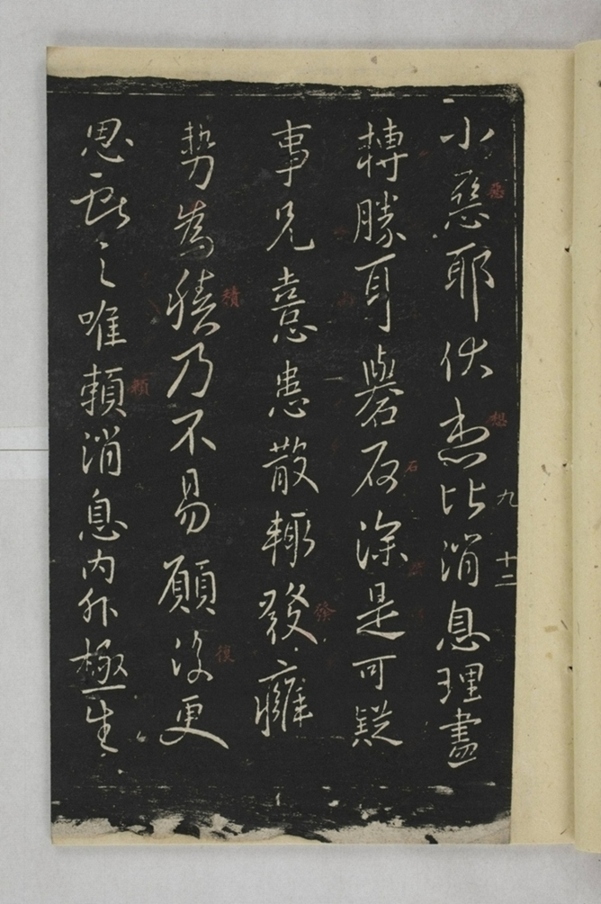 小惡耶伏想比消息理盡
轉勝耳礜石深是可疑
事兄憙患散輒發癰
勢為積乃不易願復更
思之唯賴消息內外極生
九
十二
惡
想
石
發
積
復
賴